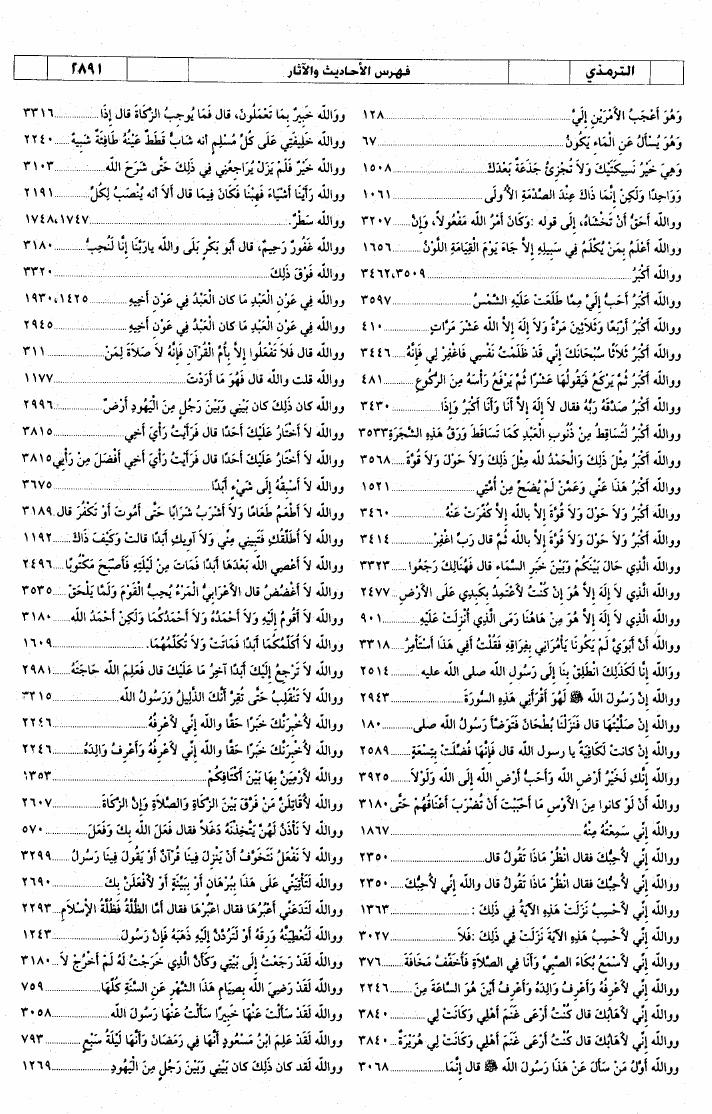 الترمذي
فهرس الأحاديث والآثار
٢٨٩١
وَهُوَ أَعْجَبُ الأَمْرَيْنِ إِلَيَّ ١٢٨
وَهُوَ يُسْأَلُ عَنِ الْمَاءِ يَكُونُ ٦٧
وَهِيَ خَيْرُ نَسِيكَتَيْكَ وَلاَ تُجْزِئُ جَذَعَةٌ بَعْدَكَ ١٥٠٨
وَوَاحِدًا وَلَكِنْ إِنَّمَا ذَاكَ عِنْدَ الصَّدْمَةِ الأُولَى ١٠٦١
ووالله أَحَقُّ أَنْ تَخْشَاهُ، إِلَى قوله :وَكَانَ أَمْرُ اللَّه مَفْعُولاً، وَإِنَّ ٣٢٠٧
ووالله أَعْلَمُ بِمَنْ يُكْلَمُ فِي سَبِيلِهِ إِلاَّ جَاءَ يَوْمَ الْقِيَامَةِ اللَّوْنُ ١٦٥٦
ووالله أَكْبَرُ ٣٤٦٢،٣٥٠٩
ووالله أَكْبَرُ أَحَبُّ إِلَيَّ مِمَّا طَلَعَتْ عَلَيْهِ الشَّمْسُ ٣٥٩٧
ووالله أَكْبَرُ أَرْبَعًا وَثَلاَثِينَ مَرَّةً وَلاَ إِلَهَ إِلاَّ الله عَشْرَ مَرَّاتٍ ٤١٠
ووالله أَكْبَرُ ثَلاَثًا سُبْحَانَكَ إِنِّي قَدْ ظَلَمْتُ نَفْسِي فَاغْفِرْ لِي فَإِنَّهُ ٣٤٤٦
ووالله أَكْبَرُ ثُمَّ يَرْكَعُ فَيَقُولُهَا عَشْرًا ثُمَّ يَرْفَعُ رَأْسَهُ مِنَ الرُّكُوعِ ٤٨١
ووالله أَكْبَرُ صَدَّقَهُ رَبُّهُ فقال لاَ إِلَهَ إِلاَّ أَنَا وَأَنَا أَكْبَرُ وَإِذَا ٣٤٣٠
ووالله أَكْبَرُ لَتُسَاقِطُ مِنْ ذُنُوبِ الْعَبْدِ كَمَا تَسَاقَطَ وَرَقُ هَذِهِ الشَّجَرَةِ ٣٥٣٣
ووالله أَكْبَرُ مِثْلَ ذَلِكَ وَالْحَمْدُ لله مِثْلَ ذَلِكَ وَلاَ حَوْلَ وَلاَ قُوَّةَ ٣٥٦٨
ووالله أَكْبَرُ هَذَا عَنِّي وَعَمَّنْ لَمْ يُضَحِّ مِنْ أُمَّتِي ١٥٢١
ووالله أَكْبَرُ وَلاَ حَوْلَ وَلاَ قُوَّةَ إِلاَّ بالله إِلاَّ كُفِّرَتْ عَنْهُ ٣٤٦٠
ووالله أَكْبَرُ وَلاَ حَوْلَ وَلاَ قُوَّةَ إِلاَّ بالله ثُمَّ قال رَبِّ اغْفِرْ ٣٤١٤
ووالله الَّذِي حَالَ بَيْنَكُمْ وَبَيْنَ خَبَرِ السَّمَاءِ قال فَهُنَالِكَ رَجَعُوا ٣٣٢٣
ووالله الَّذِي لاَ إِلَهَ إِلاَّ هُوَ إِنْ كُنْتُ لأَعْتَمِدُ بِكَبِدِي عَلَى الأَرْضِ ٢٤٧٧
ووالله الَّذِي لاَ إِلَهَ إِلاَّ هُوَ مِنْ هَاهُنَا رَمَى الَّذِي أُنْزِلَتْ عَلَيْهِ ٩٠١
ووالله أَنَّ أَبَوَيَّ لَمْ يَكُونَا يَأْمُرَانِي بِفِرَاقِهِ فَقُلْتُ أَفِي هَذَا أَسْتَأْمِرُ ٣٣١٨
ووالله إِنَّا لَكَذَلِكَ انْطَلِقْ بِنَا إِلَى رَسُولِ الله صلى الله عليه ٢٥١٤
ووالله إِنَّ رَسُولَ الله ﷺ لَهُوَ أَقْرَأَنِي هَذِهِ السُّورَةَ ٢٩٤٣
ووالله إِنْ صَلَّيْتُهَا قال فَنَزَلْنَا بُطْحَانَ فَتَوَضَّأَ رَسُولُ الله صلى ١٨٠
ووالله إِنْ كَانَتْ لَكَافِيَةً يا رسول الله قال فَإِنَّهَا فُضِّلَتْ بِتِسْعَةٍ ٢٥٨٩
ووالله إِنَّكِ لَخَيْرُ أَرْضِ الله وَأَحَبُّ أَرْضِ الله إِلَى الله وَلَوْلاَ ٣٩٢٥
ووالله أَنْ لَوْ كانوا مِنَ الأَوْسِ مَا أَحْبَبْتَ أَنْ تُضْرَبَ أَعْنَاقُهُمْ حَتَّى ٣١٨٠
ووالله إِنِّي سَمِعْتُهُ مِنْهُ ١٨٦٧
ووالله إِنِّي لأُحِبُّكَ فقال انْظُرْ مَاذَا تَقُولُ قال ٢٣٥٠
ووالله إِنِّي لأُحِبُّكَ فقال انْظُرْ مَاذَا تَقُولُ قال والله إِنِّي لأُحِبُّكَ ٢٣٥٠
ووالله إِنِّي لأَحْسِبُ نَزَلَتْ هَذِهِ الآيَةُ فِي ذَلِكَ : ١٣٦٣
ووالله إِنِّي لأَحْسِبُ هَذِهِ الآيَةَ نَزَلَتْ فِي ذَلِكَ :فَلاَ ٣٠٢٧
ووالله إِنِّي لأَسْمَعُ بُكَاءَ الصَّبِيِّ وَأَنَا فِي الصَّلاَةِ فَأُخَفِّفُ مَخَافَةَ ٣٧٦
ووالله إِنِّي لأَعْرِفُهُ وَأَعْرِفُ وَالِدَهُ وَأَعْرِفُ أَيْنَ هُوَ السَّاعَةَ مِنَ ٢٢٤٦
ووالله إِنِّي لأَهَابُكَ قال كُنْتُ أَرْعَى غَنَمَ أَهْلِي وَكَانَتْ لِي ٣٨٤٠
ووالله إِنِّي لأَهَابُكَ قال كُنْتُ أَرْعَى غَنَمَ أَهْلِي وَكَانَتْ لِي هُرَيْرَةٌ ٣٨٤٠
ووالله أَوَّلُ مَنْ سَأَلَ عَنْ هَذَا رَسُولَ الله ﷺ قال إِنَّمَا ٣٠٦٨
ووالله خَبِيرٌ بِمَا تَعْمَلُونَ، قال فَمَا يُوجِبُ الزَّكَاةَ قال إِذَا ٣٣١٦
ووالله خَلِيفَتِي عَلَى كُلِّ مُسْلِمٍ أنه شَابٌّ قَطَطٌ عَيْنُهُ طَافِئَةٌ شَبِيهٌ ٢٢٤٠
ووالله خَيْرٌ فَلَمْ يَزَلْ يُرَاجِعُنِي فِي ذَلِكَ حَتَّى شَرَحَ الله ٣١٠٣
ووالله رَأَيْنَا أَشْيَاءَ فَهِبْنَا فَكَانَ فِيمَا قال أَلاَ أنه يُنْصَبُ لِكُلِّ ٢١٩١
ووالله سَطْرٌ. ١٧٤٨،١٧٤٧
ووالله غَفُورٌ رَحِيمٌ، قال أَبو بَكْرٍ بَلَى والله يارَبَّنَا إِنَّا لَنُحِبُّ ٣١٨٠
ووالله فَوْقَ ذَلِكَ ٣٣٢٠
ووالله فِي عَوْنِ الْعَبْدِ مَا كان الْعَبْدُ فِي عَوْنِ أَخِيهِ ١٩٣٠،١٤٢٥
ووالله فِي عَوْنِ الْعَبْدِ مَا كان الْعَبْدُ فِي عَوْنِ أَخِيهِ ٢٩٤٥
ووالله قال فَلاَ تَفْعَلُوا إِلاَّ بِأُمِّ الْقُرْآنِ فَإِنَّهُ لاَ صَلاَةَ لِمَنْ ٣١١
ووالله قلت والله قال فَهُوَ مَا أَرَدْتَ ١١٧٧
ووالله كان ذَلِكَ كان بَيْنِي وَبَيْنَ رَجُلٍ مِنَ الْيَهُودِ أَرْضٌ ٢٩٩٦
ووالله لاَ أَخْتَارُ عَلَيْكَ أَحَدًا قال فَرَأَيْتُ رَأْيَ أَخِي ٣٨١٥
ووالله لاَ أَخْتَارُ عَلَيْكَ أَحَدًا قال فَرَأَيْتُ رَأْيَ أَخِي أَفْضَلَ مِنْ رَأْيِي ٣٨١٥
ووالله لاَ أَسْبِقُهُ إِلَى شَيْءٍ أَبَدًا ٣٦٧٥
ووالله لاَ أَطْعَمُ طَعَامًا وَلاَ أَشْرَبُ شَرَابًا حَتَّى أَمُوتَ أَوْ تَكْفُرَ قال ٣١٨٩
ووالله لاَ أُطَلِّقُكِ فَتَبِينِي مِنِّي وَلاَ آوِيكِ أَبَدًا قالت وَكَيْفَ ذَاكَ ١١٩٢
ووالله لاَ أَعْصِي الله بَعْدَهَا أَبَدًا فَمَاتَ مِنْ لَيْلَتِهِ فَأَصْبَحَ مَكْتُوبًا ٢٤٩٦
ووالله لاَ أَغْضُضُ قال الأَعْرَابِيُّ الْمَرْءُ يُحِبُّ الْقَوْمَ وَلَمَّا يَلْحَقْ ٣٥٣٥
ووالله لاَ أَقُومُ إِلَيْهِ وَلاَ أَحْمَدُهُ وَلاَ أَحْمَدُكُمَا وَلَكِنْ أَحْمَدُ الله ٣١٨٠
ووالله لاَ أُكَلِّمُكُمَا أَبَدًا فَمَاتَتْ وَلاَ تُكَلِّمُهُمَا. ١٦٠٩
ووالله لاَ تَرْجِعُ إِلَيْكَ أَبَدًا آخِرُ مَا عَلَيْكَ قال فَعَلِمَ الله حَاجَتَهُ ٢٩٨١
ووالله لاَ تَنْقَلِبُ حَتَّى تُقِرَّ أَنَّكَ الذَّلِيلُ وَرَسُولُ الله ٣٣١٥
ووالله لأُخْبِرَنَّكَ خَبَرًا حَقًّا والله إِنِّي لأَعْرِفُهُ ٢٢٤٦
ووالله لأُخْبِرَنَّكَ خَبَرًا حَقًّا والله إِنِّي لأَعْرِفُهُ وَأَعْرِفُ وَالِدَهُ ٢٢٤٦
ووالله لأَرْمِيَنَّ بِهَا بَيْنَ أَكْتَافِكُمْ ١٣٥٣
ووالله لأُقَاتِلَنَّ مَنْ فَرَّقَ بَيْنَ الزَّكَاةِ وَالصَّلاَةِ وَإِنَّ الزَّكَاةَ ٢٦٠٧
ووالله لاَ نَأْذَنُ لَهُنَّ يَتَّخِذْنَهُ دَغَلاً فقال فَعَلَ الله بِكَ وَفَعَلَ ٥٧٠
ووالله لاَ نَفْعَلُ نَتَخَوَّفُ أَنْ يَنْزِلَ فِينَا قُرْآنٌ أَوْ يَقُولَ فِينَا رَسُولُ ٣٢٩٩
ووالله لَتَأْتِيَنِّي عَلَى هَذَا بِبُرْهَانٍ أَوْ بِبَيِّنَةٍ أَوْ لأَفْعَلَنَّ بِكَ ٢٦٩٠
ووالله لَتَدَعَنِّي أَعْبُرُهَا فقال اعْبُرْهَا فقال أَمَّا الظُّلَّةُ فَظُلَّةُ الإِسْلاَمِ ٢٢٩٣
ووالله لَتُعْطِيَنَّهُ وَرِقَهُ أَوْ لَتَرُدَّنَّ إِلَيْهِ ذَهَبَهُ فَإِنَّ رَسُولَ ١٢٤٣
ووالله لَقَدْ رَجَعْتُ إِلَى بَيْتِي وَكَأَنَّ الَّذِي خَرَجْتُ لَهُ لَمْ أَخْرُجْ لاَ ٣١٨٠
ووالله لَقَدْ رَضِيَ الله بِصِيَامِ هَذَا الشَّهْرِ عَنِ السَّنَةِ كُلِّهَا ٧٥٩
ووالله لَقَدْ سَأَلْتَ عَنْهَا خَبِيرًا سَأَلْتُ عَنْهَا رَسُولَ الله ٣٠٥٨
ووالله لَقَدْ عَلِمَ ابْنُ مَسْعُودٍ أَنَّهَا فِي رَمَضَانَ وَأَنَّهَا لَيْلَةُ سَبْعٍ ٧٩٣
ووالله لَقَدْ كان ذَلِكَ كان بَيْنِي وَبَيْنَ رَجُلٍ مِنَ الْيَهُودِ ١٢٦٩